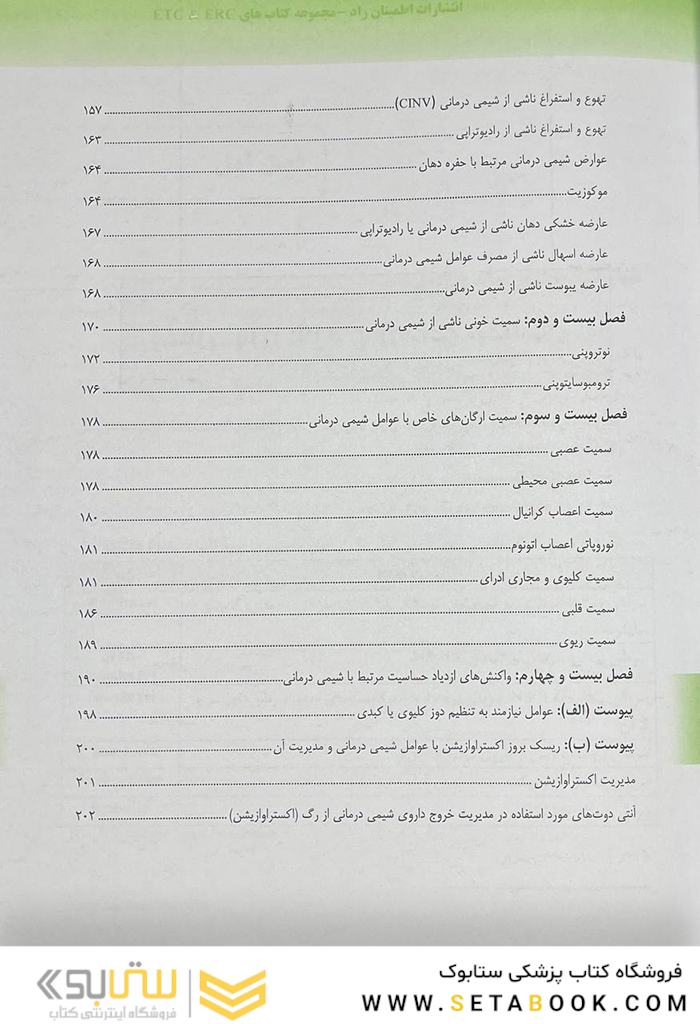 انتشارات اطمینان راد – مجموعه کتاب های ETC & ERC
تهوع و استفراغ ناشی از شیمی درمانی (CINV) ۱۵۷
تهوع و استفراغ ناشی از رادیوتراپی ۱۶۳
عوارض شیمی درمانی مرتبط با حفره دهان ۱۶۴
موکوزیت ۱۶۴
عارضه خشکی دهان ناشی از شیمی درمانی یا رادیوتراپی ۱۶۷
عارضه اسهال ناشی از مصرف عوامل شیمی درمانی ۱۶۸
عارضه یبوست ناشی از شیمی درمانی ۱۶۸
فصل بیست و دوم: سمیت خونی ناشی از شیمی درمانی ۱۷۰
نوتروپنی ۱۷۲
ترومبوسایتوپنی ۱۷۶
فصل بیست و سوم: سمیت ارگان‌های خاص با عوامل شیمی درمانی ۱۷۸
سمیت عصبی ۱۷۸
سمیت عصبی محیطی ۱۷۸
سمیت اعصاب کرانیال ۱۸۰
نوروپاتی اعصاب اتونوم ۱۸۱
سمیت کلیوی و مجاری ادرای ۱۸۱
سمیت قلبی ۱۸۶
سمیت ریوی ۱۸۹
فصل بیست و چهارم: واکنش‌های ازدیاد حساسیت مرتبط با شیمی درمانی ۱۹۰
پیوست (الف): عوامل نیازمند به تنظیم دوز کلیوی یا کبدی ۱۹۸
پیوست (ب): ریسک بروز اکستراوازیشن با عوامل شیمی درمانی و مدیریت آن ۲۰۰
مدیریت اکستراوازیشن ۲۰۱
آنتی دوت‌های مورد استفاده در مدیریت خروج داروی شیمی درمانی از رگ (اکستراوازیشن) ۲۰۲
فروشگاه کتاب پزشکی ستابوک
WWW.SETABOOK.COM
ستابوک
فروشگاه اینترنتی کتاب